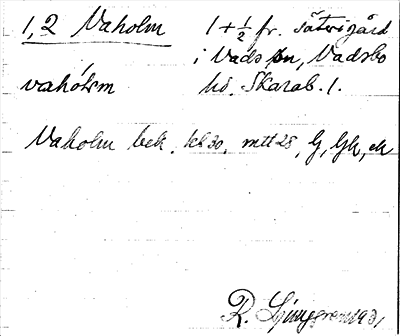 1, 2 Vaholm 1 + ½ fr. säterigård
i Vads sn, Vadsbo
hd. Skarab. l.
Vaholm bek. kk 30, mtt 28, G, Gk, ek
R. Ljunggren 193,